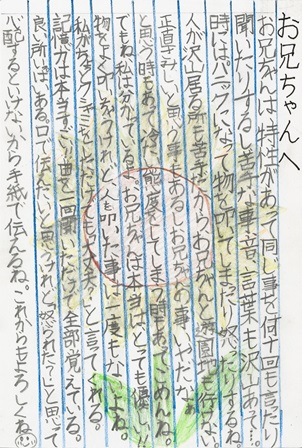 お兄ちゃんへ
お兄ちゃんは特性があって同じ事を何十回も言ったり
聞いたりするし苦手な車、音、言葉も沢山ある。
時にはパニックになって物を叩いてしまったり怒ったりするから
人が沢山居る所も苦手。お兄ちゃんと遊園地も行けない。
正直さみしいと思う事もあるしお兄ちゃんの事いやだなぁ
と思う時もあって冷たい態度にしてしまう時もあってごめんね。
でもね、私は分かっている。お兄ちゃんは本当はとっても優しい。
物をよく叩いちゃうけれど人を叩いた事は一度もないよね。
私がちょっとクシャミをしただけでも「大丈夫？」と言ってくれる。
記憶力は本当すごい。曲を一回聞いただけで全部覚えている。
良い所いっぱいある。口で伝えたいと思うけれど「怒られた？」と思って
心配するといけないから手紙で伝えるね。これからもよろしくね。